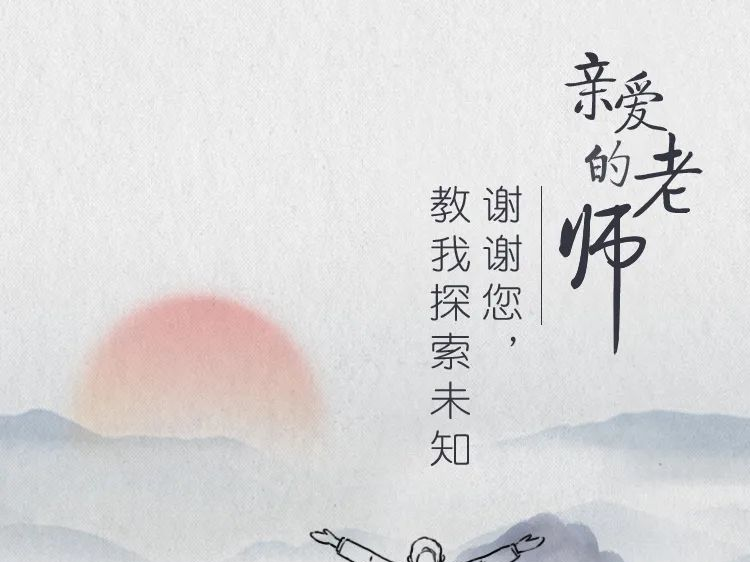 亲爱的老师
谢谢您，
教我探索未知